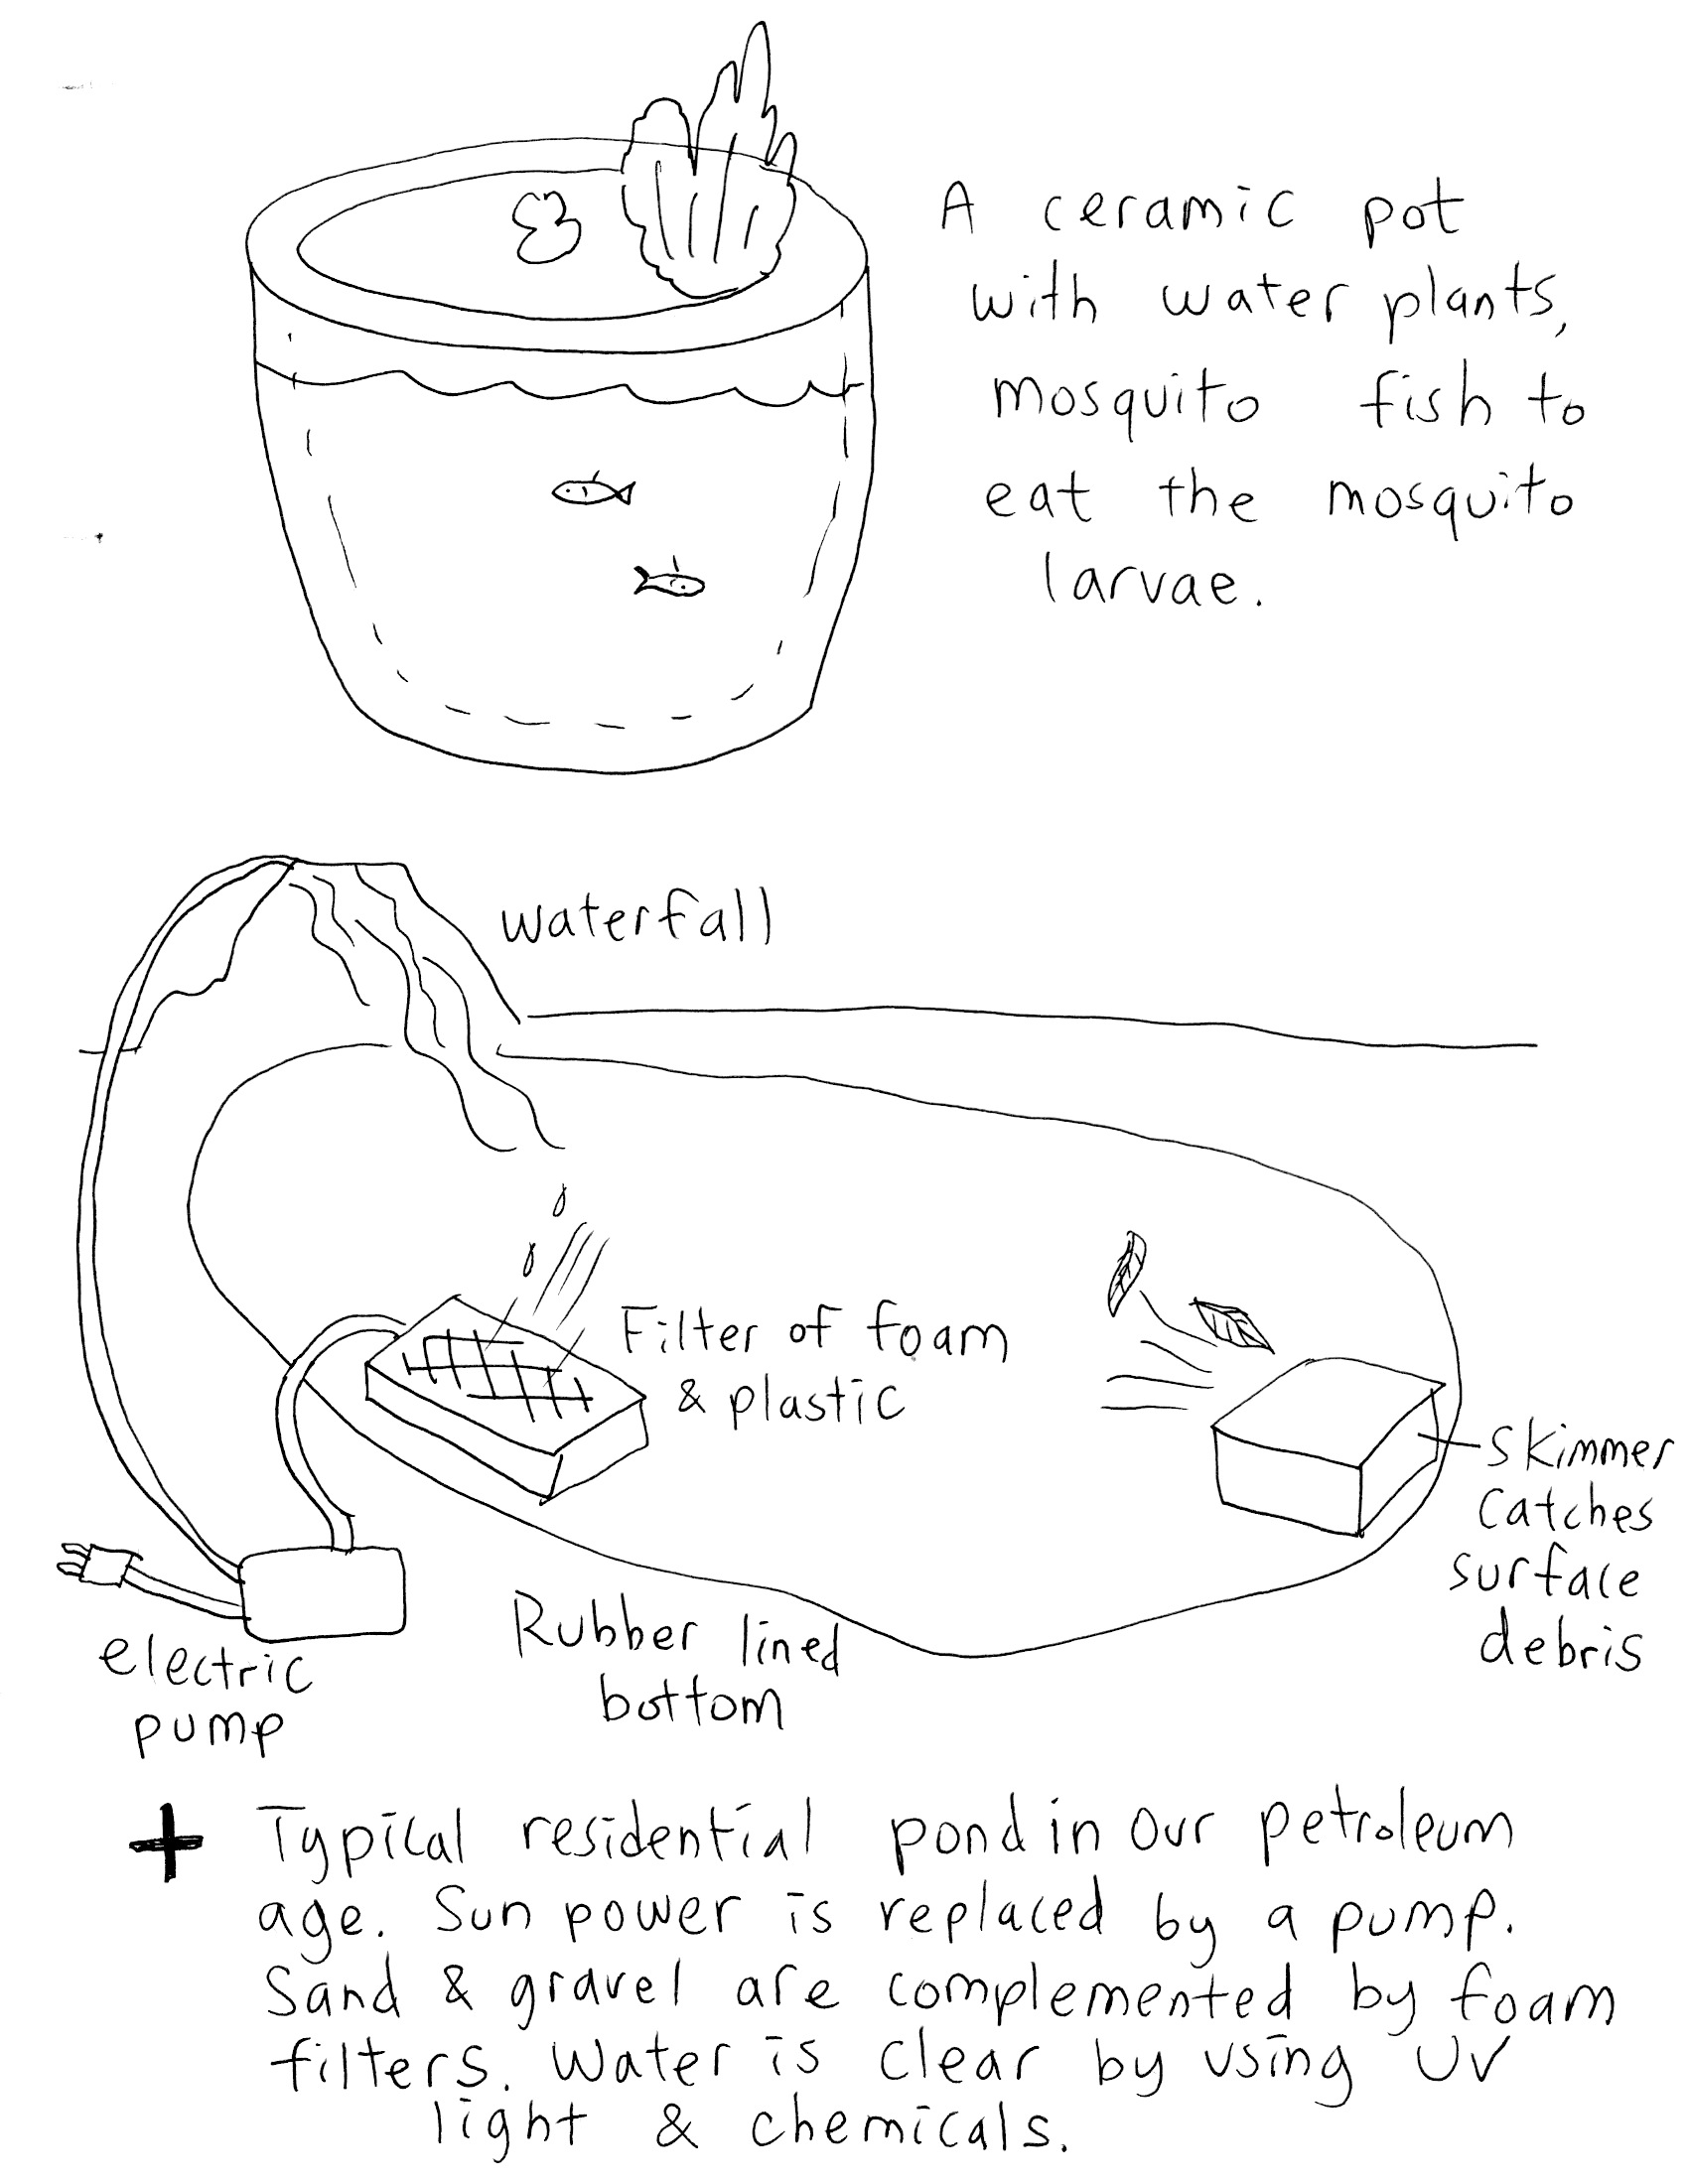 A ceramic pot
with water plants,
mosquito fish to
eat the mosquito
larvae.
waterfall
Filter of foam
& plastic
skimmer
catches
surface
debris
electric
pump
Rubber lined
bottom
+ Typical residential pond in our petroleum
age. Sun power is replaced by a pump.
Sand & gravel are complemented by foam
filters. Water is clear by using UV
light & chemicals.